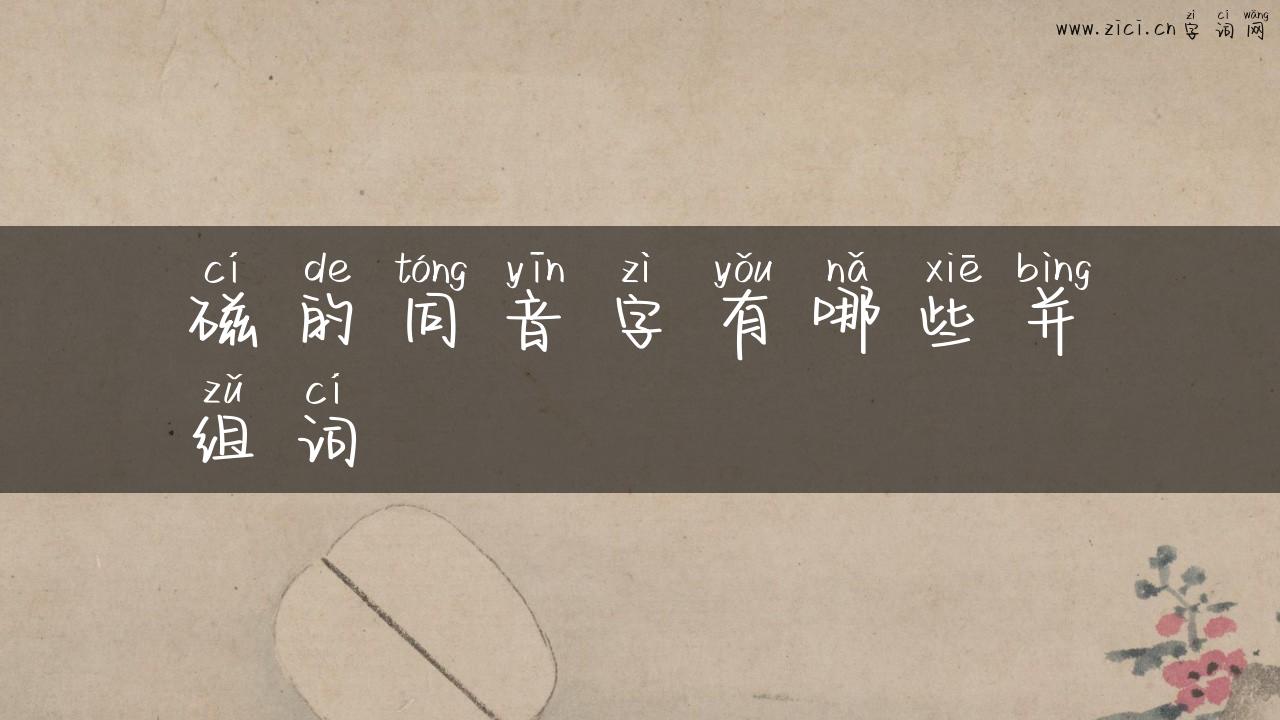 zì cí wǎng
www.zici.cn 字词网
cí de tóng yīn zì yǒu nǎ xiē bìng
磁的同音字有哪些并
zǔ cí
组词